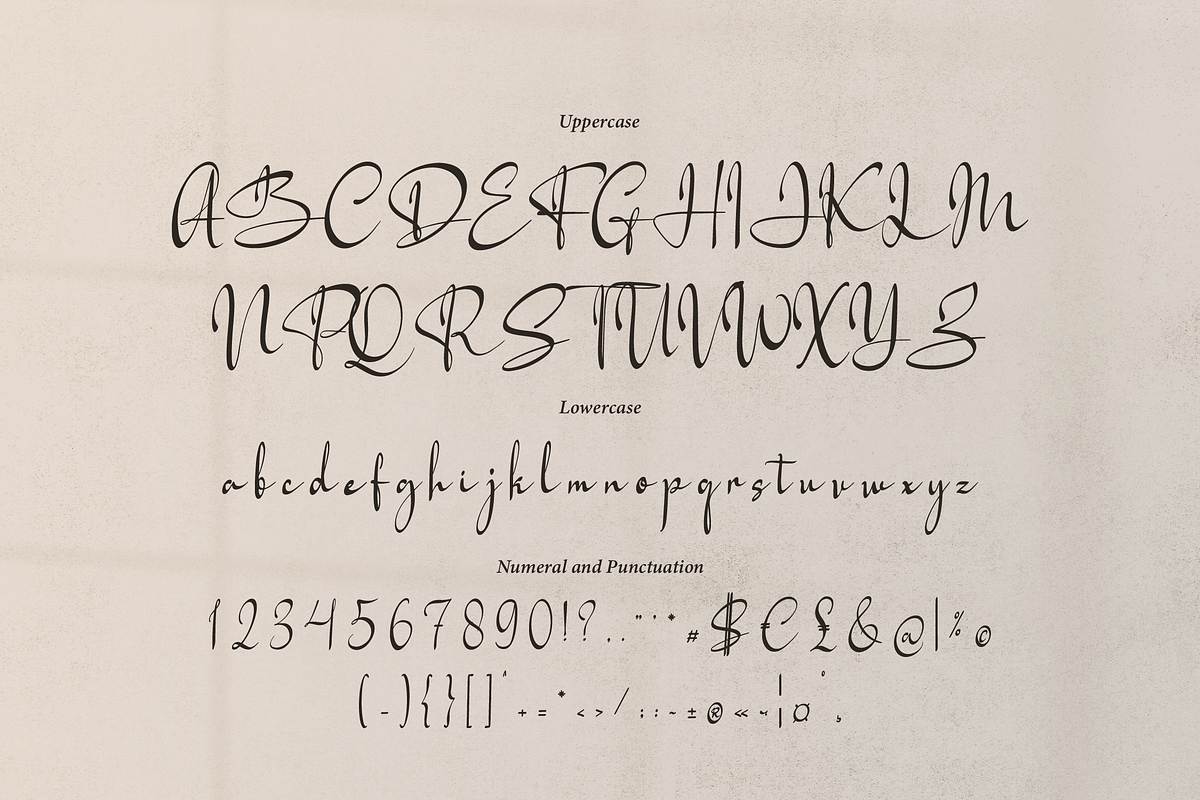 Uppercase
ABCDEFGHIJKLM
NPQRSTUVWXYZ
Lowercase
abcdefghijklmnopqrstuvwxyz
Numeral and Punctuation
1234567890!?.."'*#$€£&@|%©
(-){}[]^+=*<>/;:~±®«¬¦¤°¸